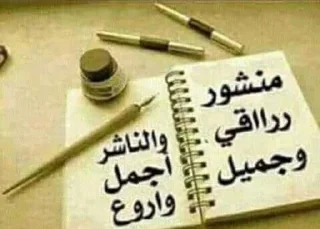 منشور
ررااقي
وجميل
والناشر
اجمل
واروع